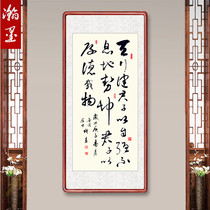 瀚墨
天行健君子以自强不
息地势坤君子以
厚德载物